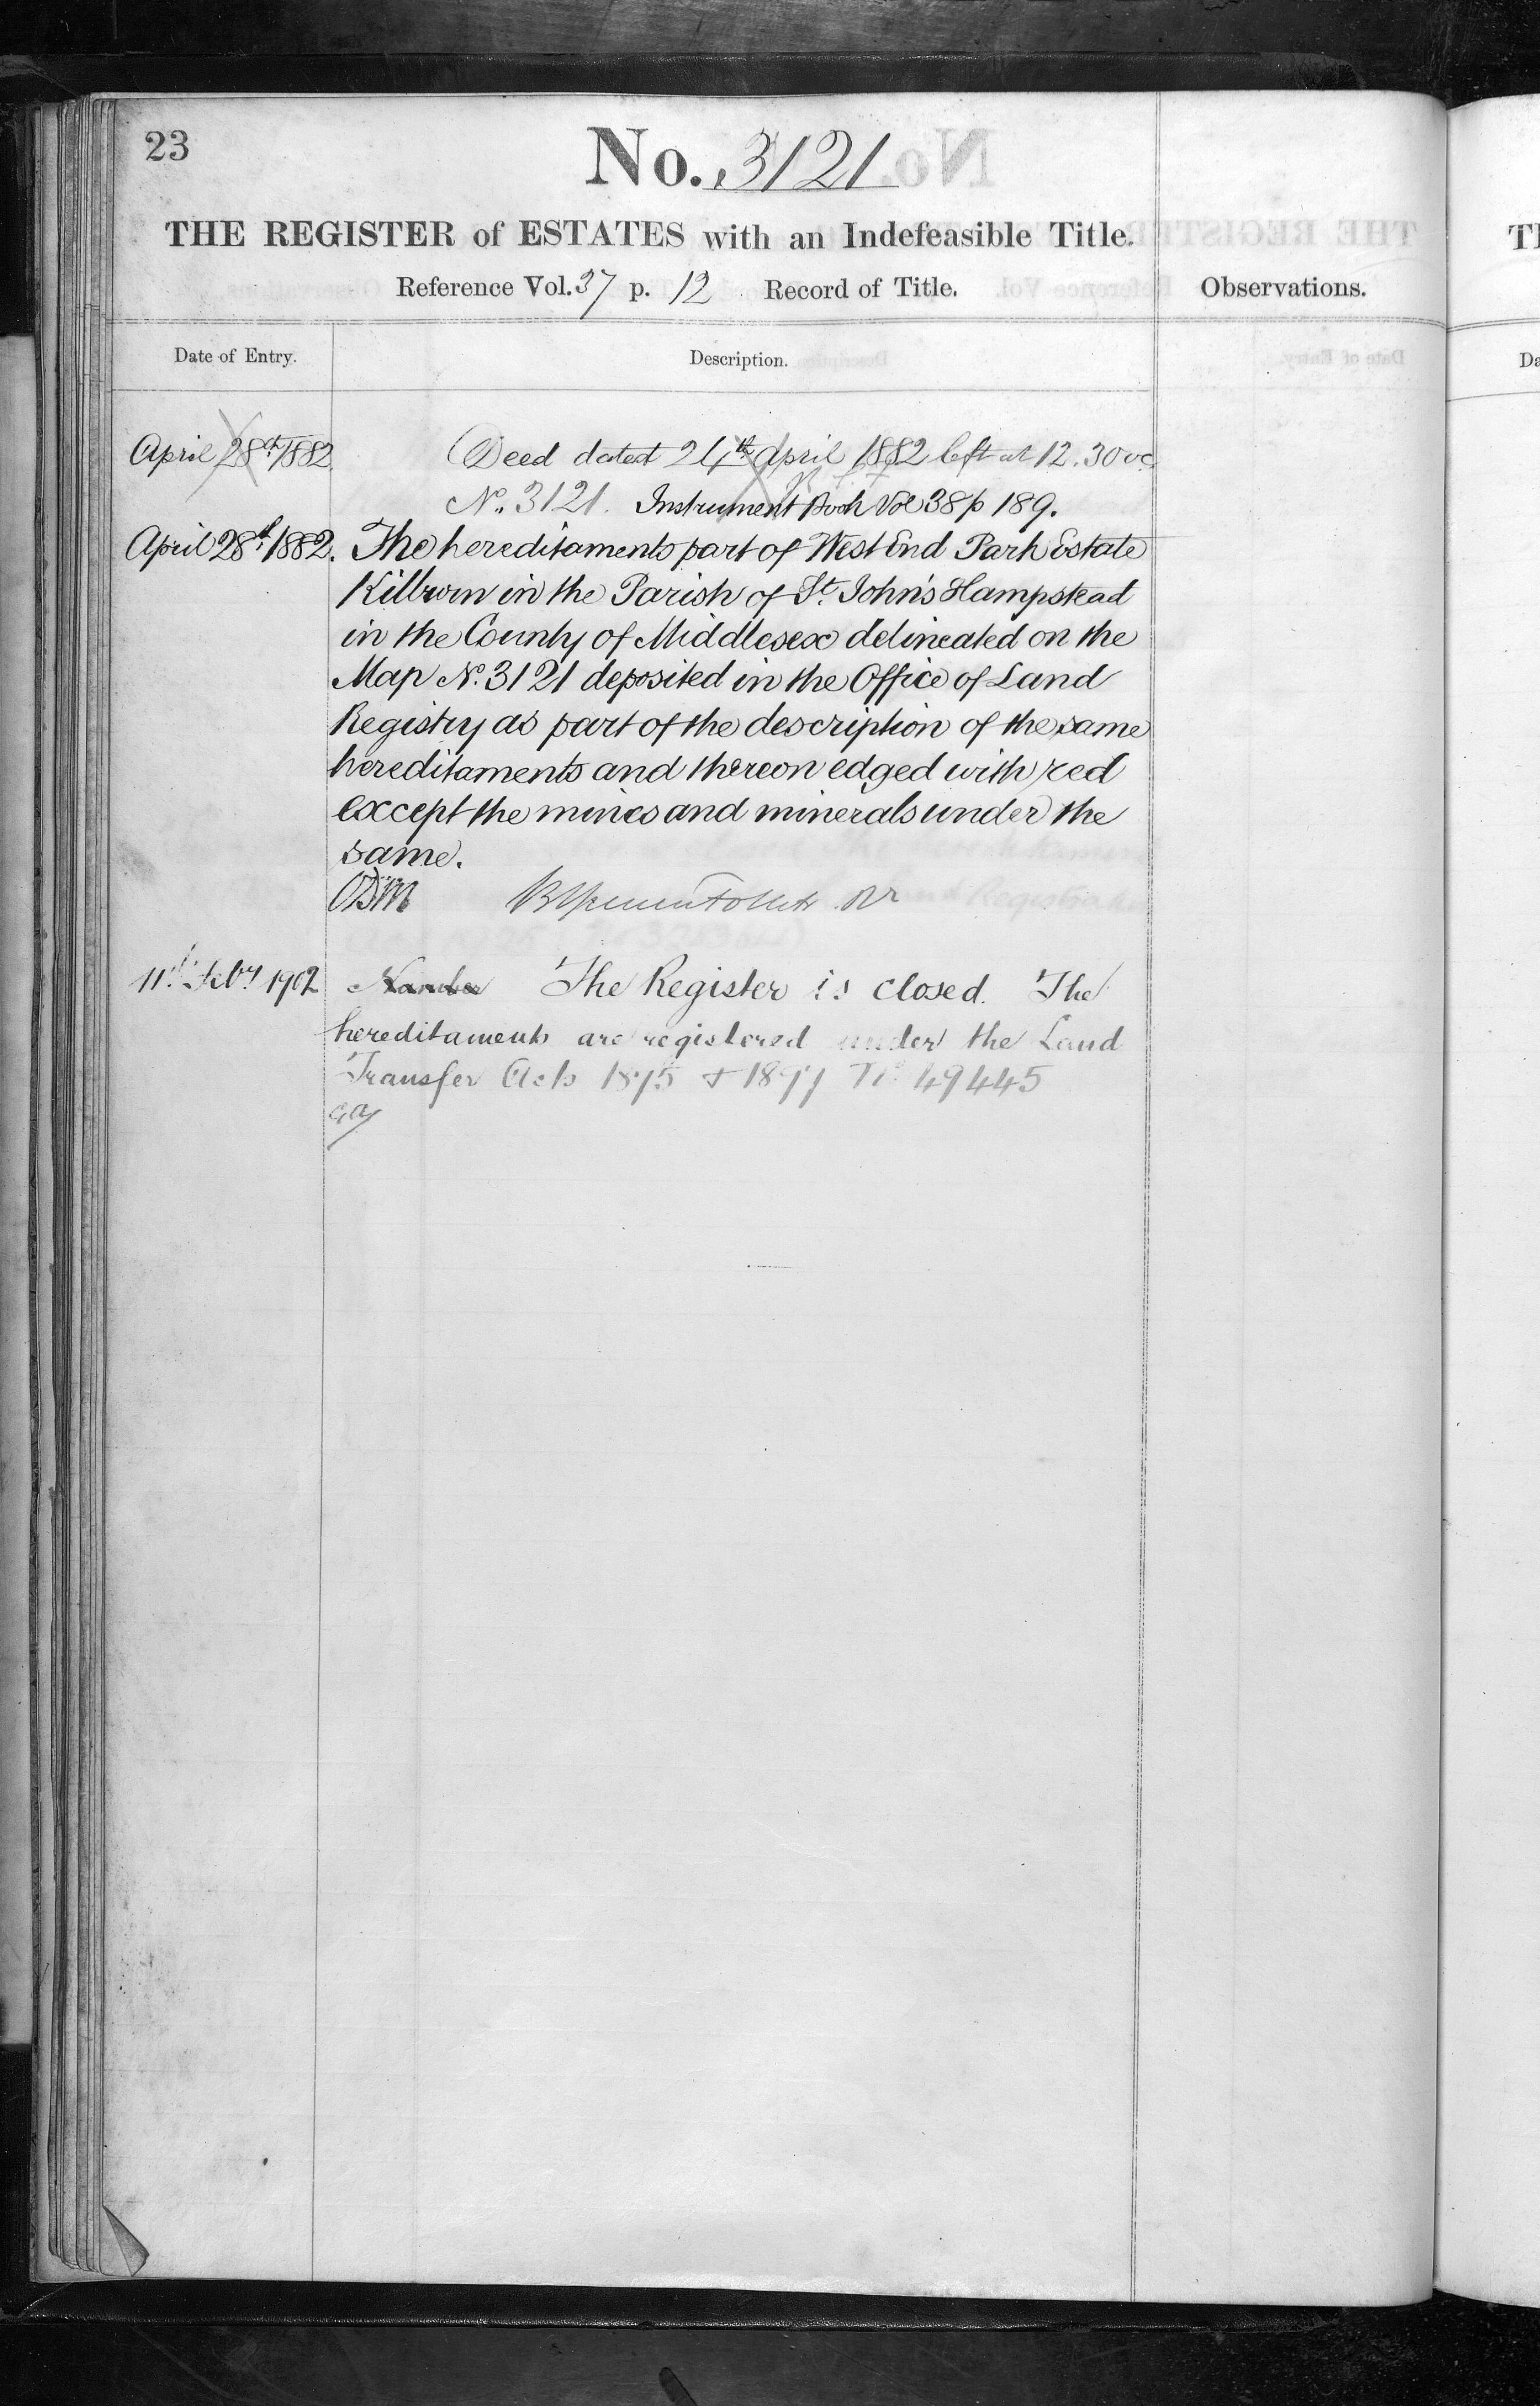 23
No. 3121
THE REGISTER of ESTATES with an Indefeasible Title.
Reference Vol. 37 p. 12 Record of Title.
Observations.
Date of Entry.
Description.
April 28th 1882
Deed dated 24th April 1882 left at 12.30
No. 3121. Instrument Book Vol 38 p 189.
April 28th 1882.
The hereditaments part of West End Park Estate
Kilburn in the Parish of St. John's Hampstead
in the County of Middlesex delineated on the
Map No. 3121 deposited in the Office of Land
Registry as part of the description of the same
hereditaments and thereon edged with red
except the mines and minerals under the
same.
11th Feby 1902
The Register is closed. The
hereditaments are registered under the Land
Transfer Acts 1875 & 1897 49445